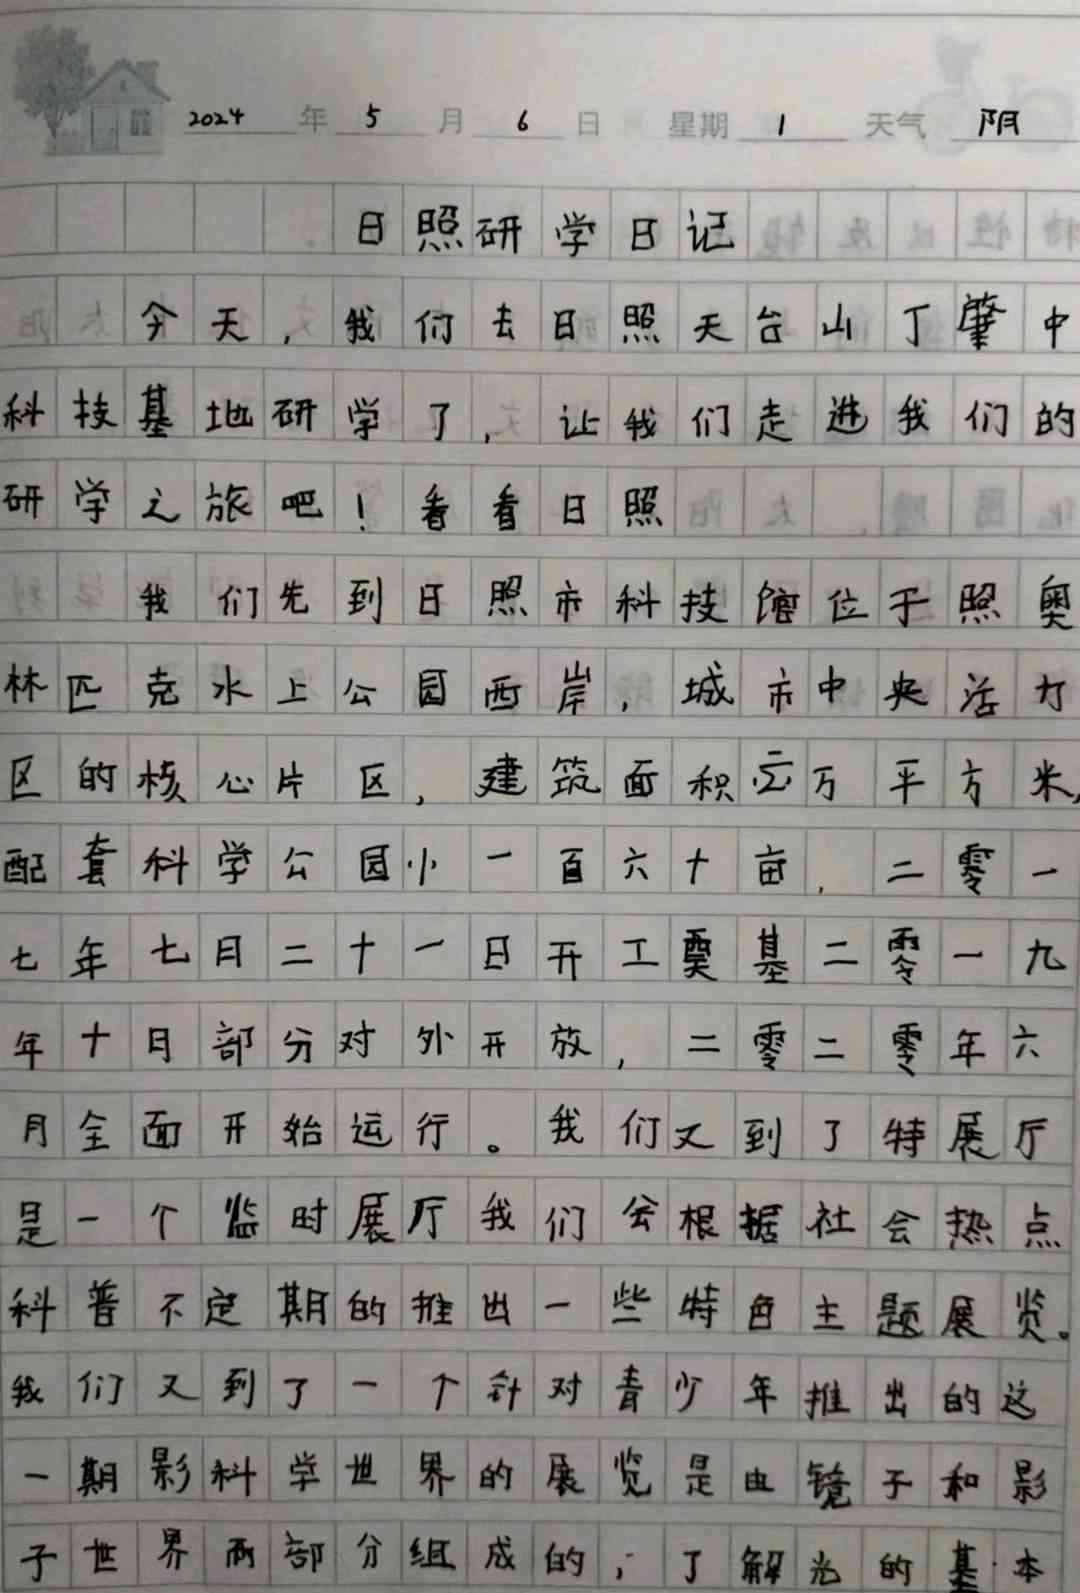 2024年5月6日 星期1 天气 阴
日照研学日记
今天，我们去日照天台山丁肇中
科技基地研学了，让我们走进我们的
研学之旅吧！看看日照
我们先到日照市科技馆位于照奥
林匹克水上公园西岸，城市中央活力
区的核心片区，建筑面积万平方米，
配套科学公园小一百六十亩，二零一
七年七月二十一日开工奠基二零一九
年十日部分对外开放，二零二零年六
月全面开始运行。我们又到了特展厅
是一个监时展厅我们会根据社会热点
科普不定期的推出一些特色主题展览。
我们又到了一个针对青少年推出的这
一期影科学世界的展览是由镜子和影
子世界两部分组成的，了解光的基本